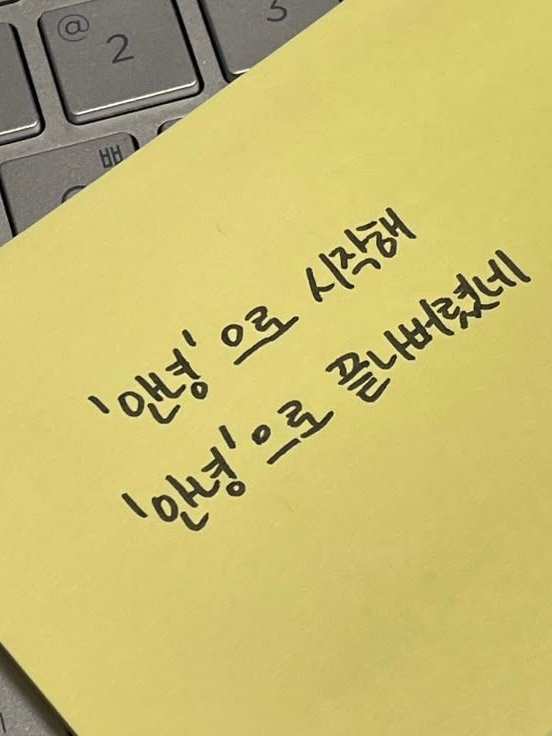 @
2
3
ㅃ
'안녕'으로 시작해
'안녕'으로 끝나버렸네